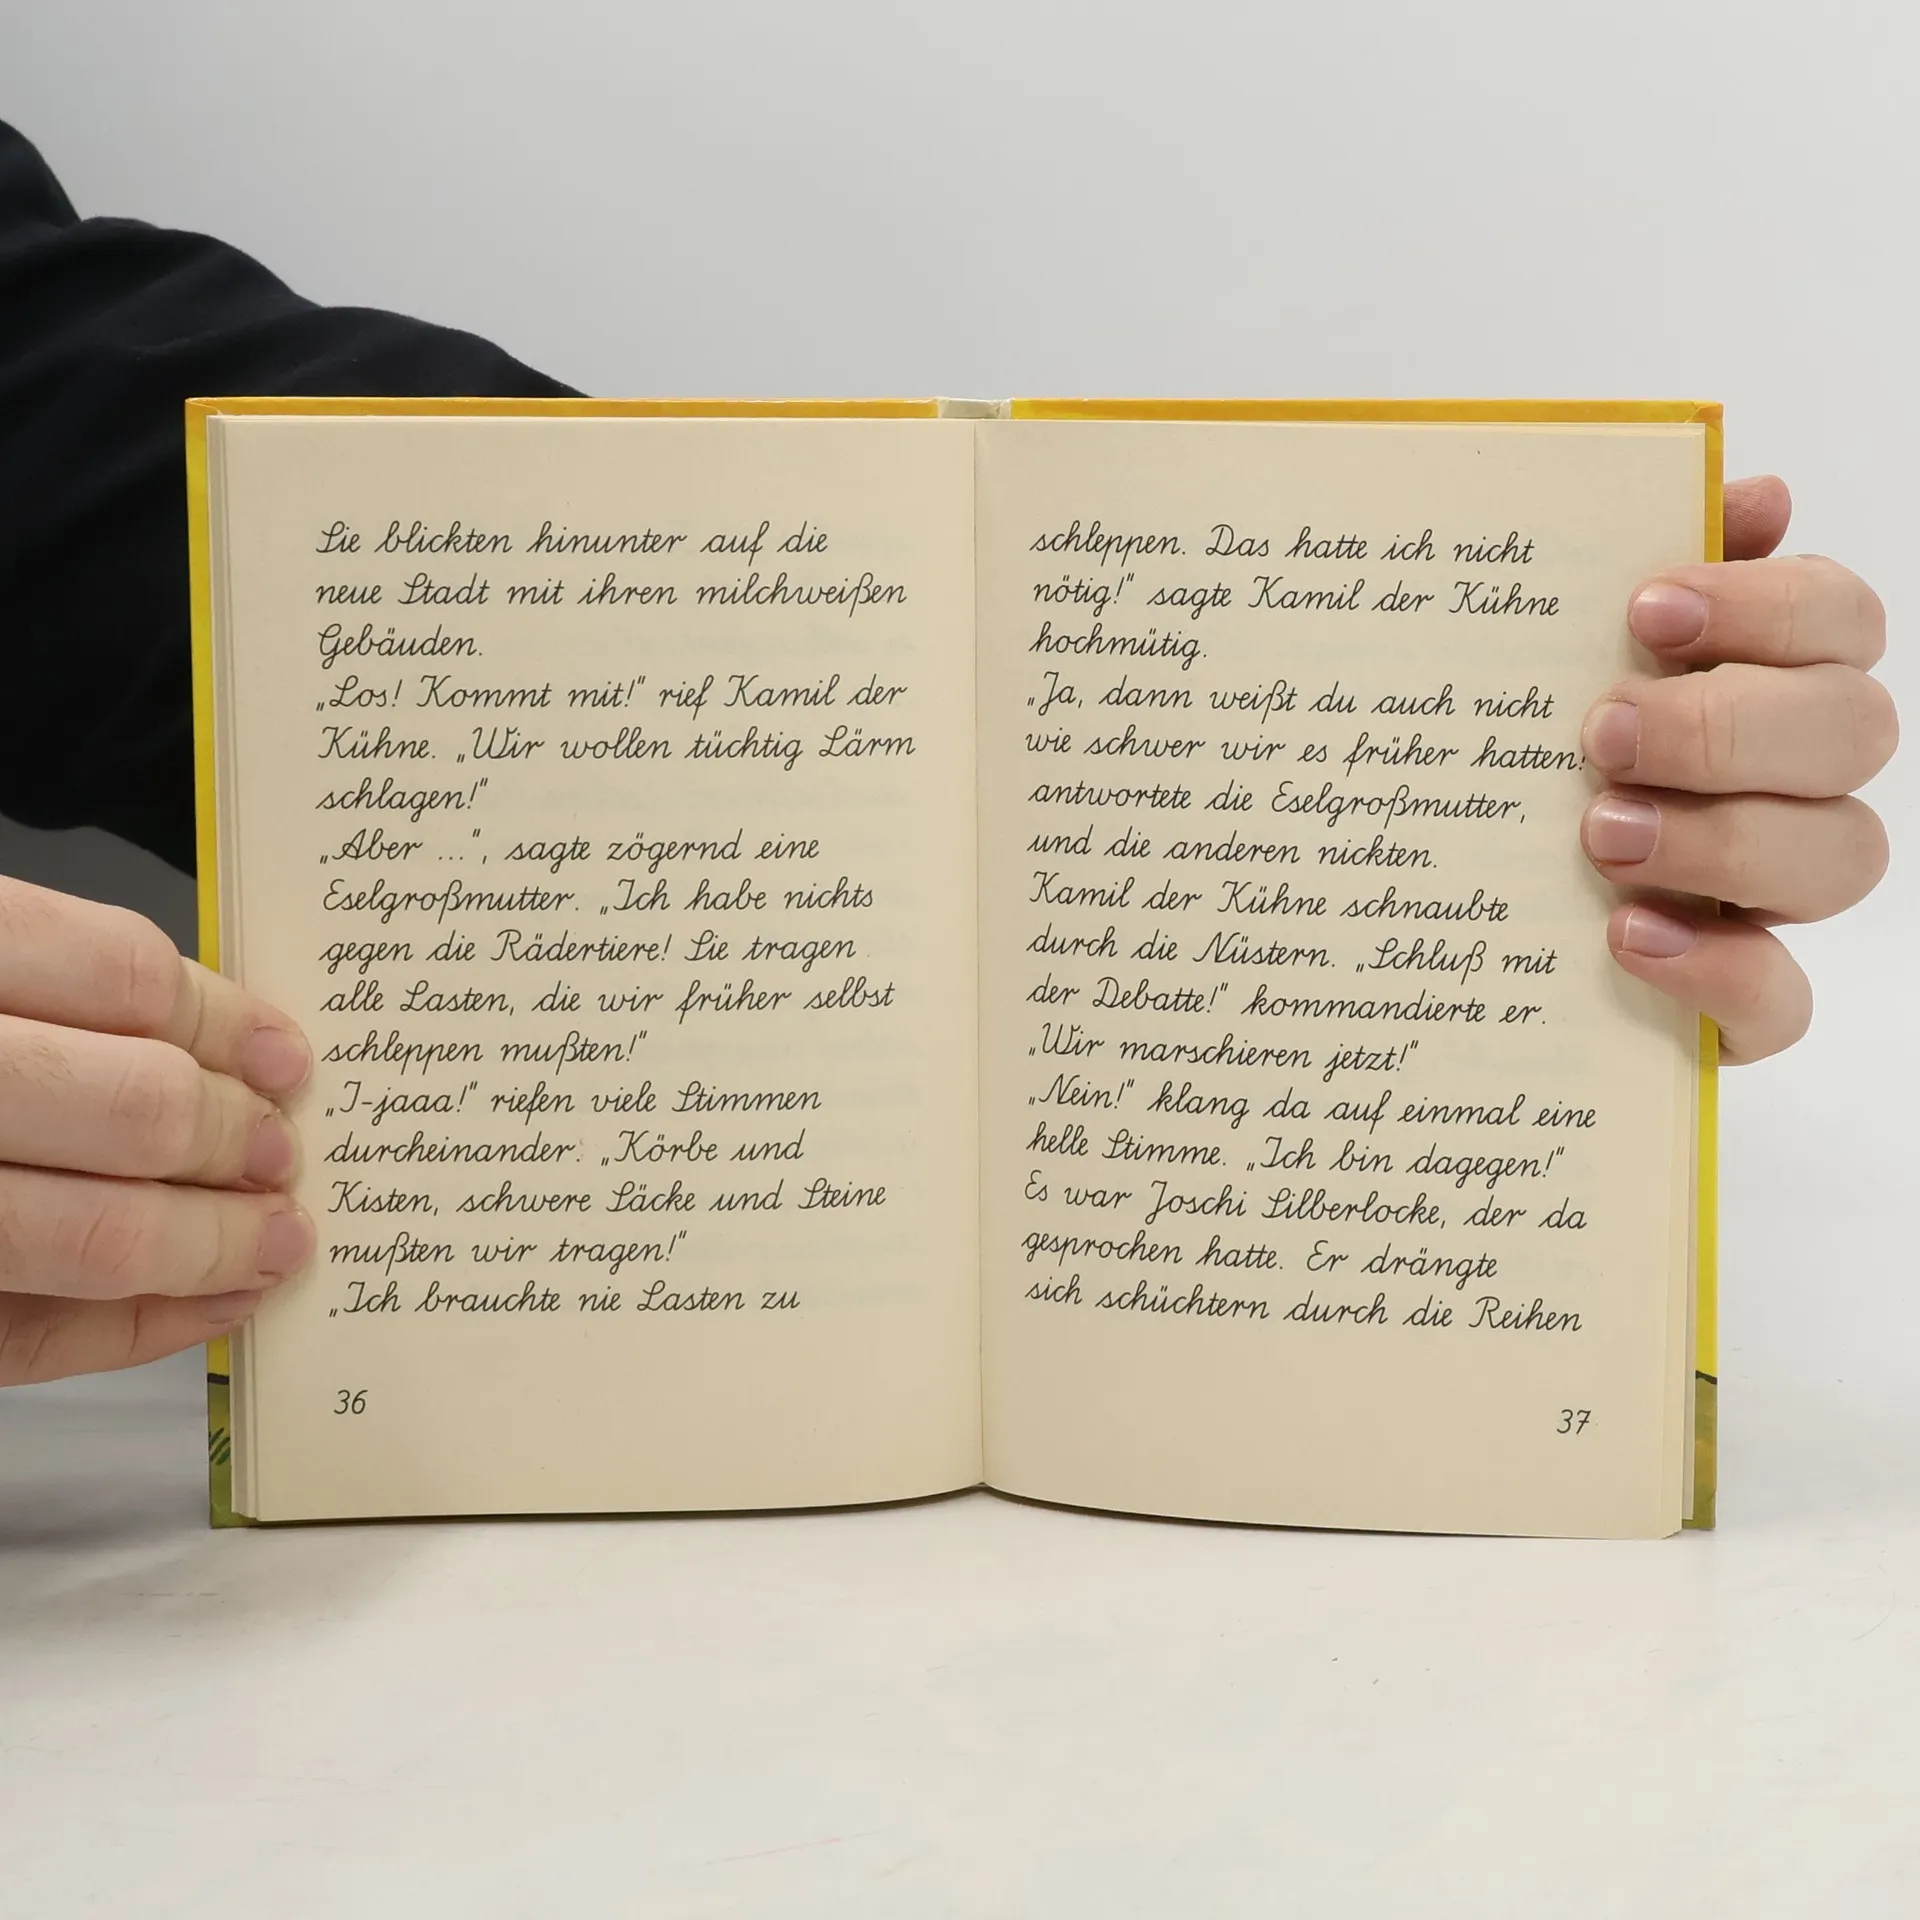 Sie blickten hinunter auf die
neue Stadt mit ihren milchweißen
Gebäuden.
„Los! Kommt mit!" rief Kamil der
Kühne. „Wir wollen tüchtig Lärm
schlagen!"
„Aber ...", sagte zögernd eine
Eselgroßmutter. „Ich habe nichts
gegen die Rädertiere! Sie tragen
alle Lasten, die wir früher selbst
schleppen mußten!"
„I-jaaa!" riefen viele Stimmen
durcheinander. „Körbe und
Kisten, schwere Säcke und Steine
mußten wir tragen!"
„Ich brauchte nie Lasten zu
36
schleppen. Das hatte ich nicht
nötig!" sagte Kamil der Kühne
hochmütig.
„Ja, dann weißt du auch nicht
wie schwer wir es früher hatten!
antwortete die Eselgroßmutter,
und die anderen nickten.
Kamil der Kühne schnaubte
durch die Nüstern. „Schluß mit
der Debatte!" kommandierte er.
„Wir marschieren jetzt!"
„Nein!" klang da auf einmal eine
helle Stimme. „Ich bin dagegen!"
Es war Joschi Silberlocke, der da
gesprochen hatte. Er drängte
sich schüchtern durch die Reihen
37